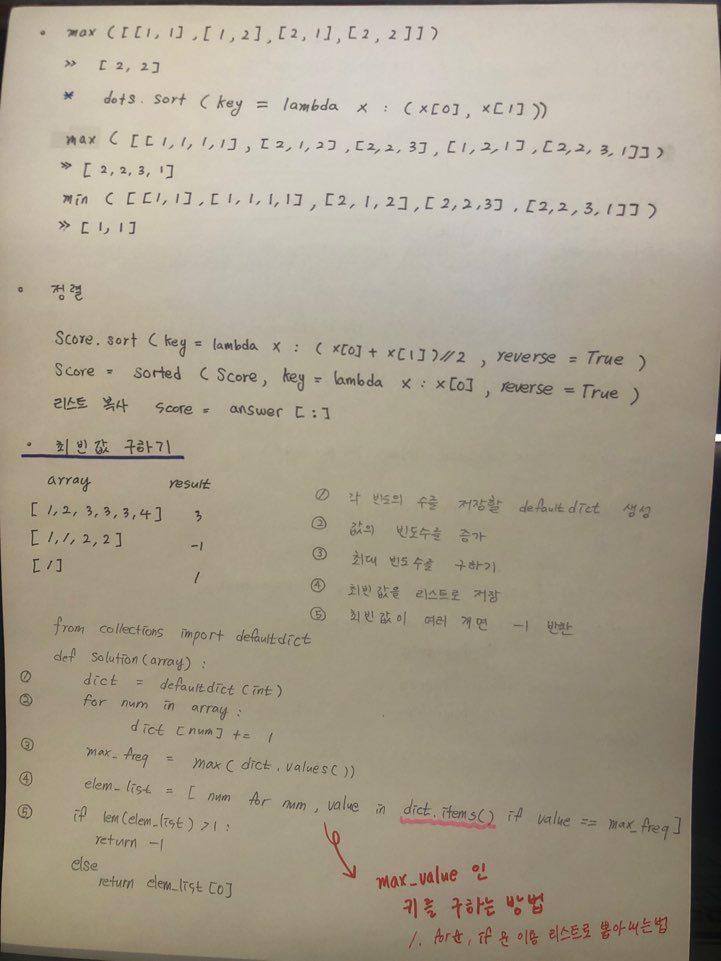 • max ([[1, 1], [1, 2], [2, 1], [2, 2]])
>> [2, 2]
* dots. sort (key = lambda x : (x[0], x[1]))
max ([[1, 1, 1, 1], [2, 1, 2], [2, 2, 3], [1, 2, 1], [2, 2, 3, 1]])
>> [2, 2, 3, 1]
min ([[1, 1], [1, 1, 1, 1], [2, 1, 2], [2, 2, 3], [2, 2, 3, 1]])
>> [1, 1]
• 정렬
Score. sort (key = lambda x : (x[0] + x[1])//2, reverse = True)
Score = sorted (Score, key = lambda x : x[0], reverse = True)
리스트 복사 score = answer [:]
• 최빈값 구하기
array result
[1, 2, 3, 3, 3, 4] 3
[1, 1, 2, 2] -1
[1] 1
① 각 빈도의 수를 저장할 defaultdict 생성
② 값의 빈도수를 증가
③ 최대 빈도수를 구하기
④ 최빈값을 리스트로 저장
⑤ 최빈값이 여러 개면 -1 반환
from collections import defaultdict
def solution(array) :
① dict = defaultdict (int)
② for num in array :
dict [num] += 1
③ max_freq = max( dict. values( ))
④ elem_list = [ num for num, value in dict. items() if value == max_freq]
⑤ if lem(elem_list) >1 :
return -1
else
return elem_list [0]
max_value 인
키를 구하는 방법
1. for문, if 문 이용 리스트로 뽑아내는법